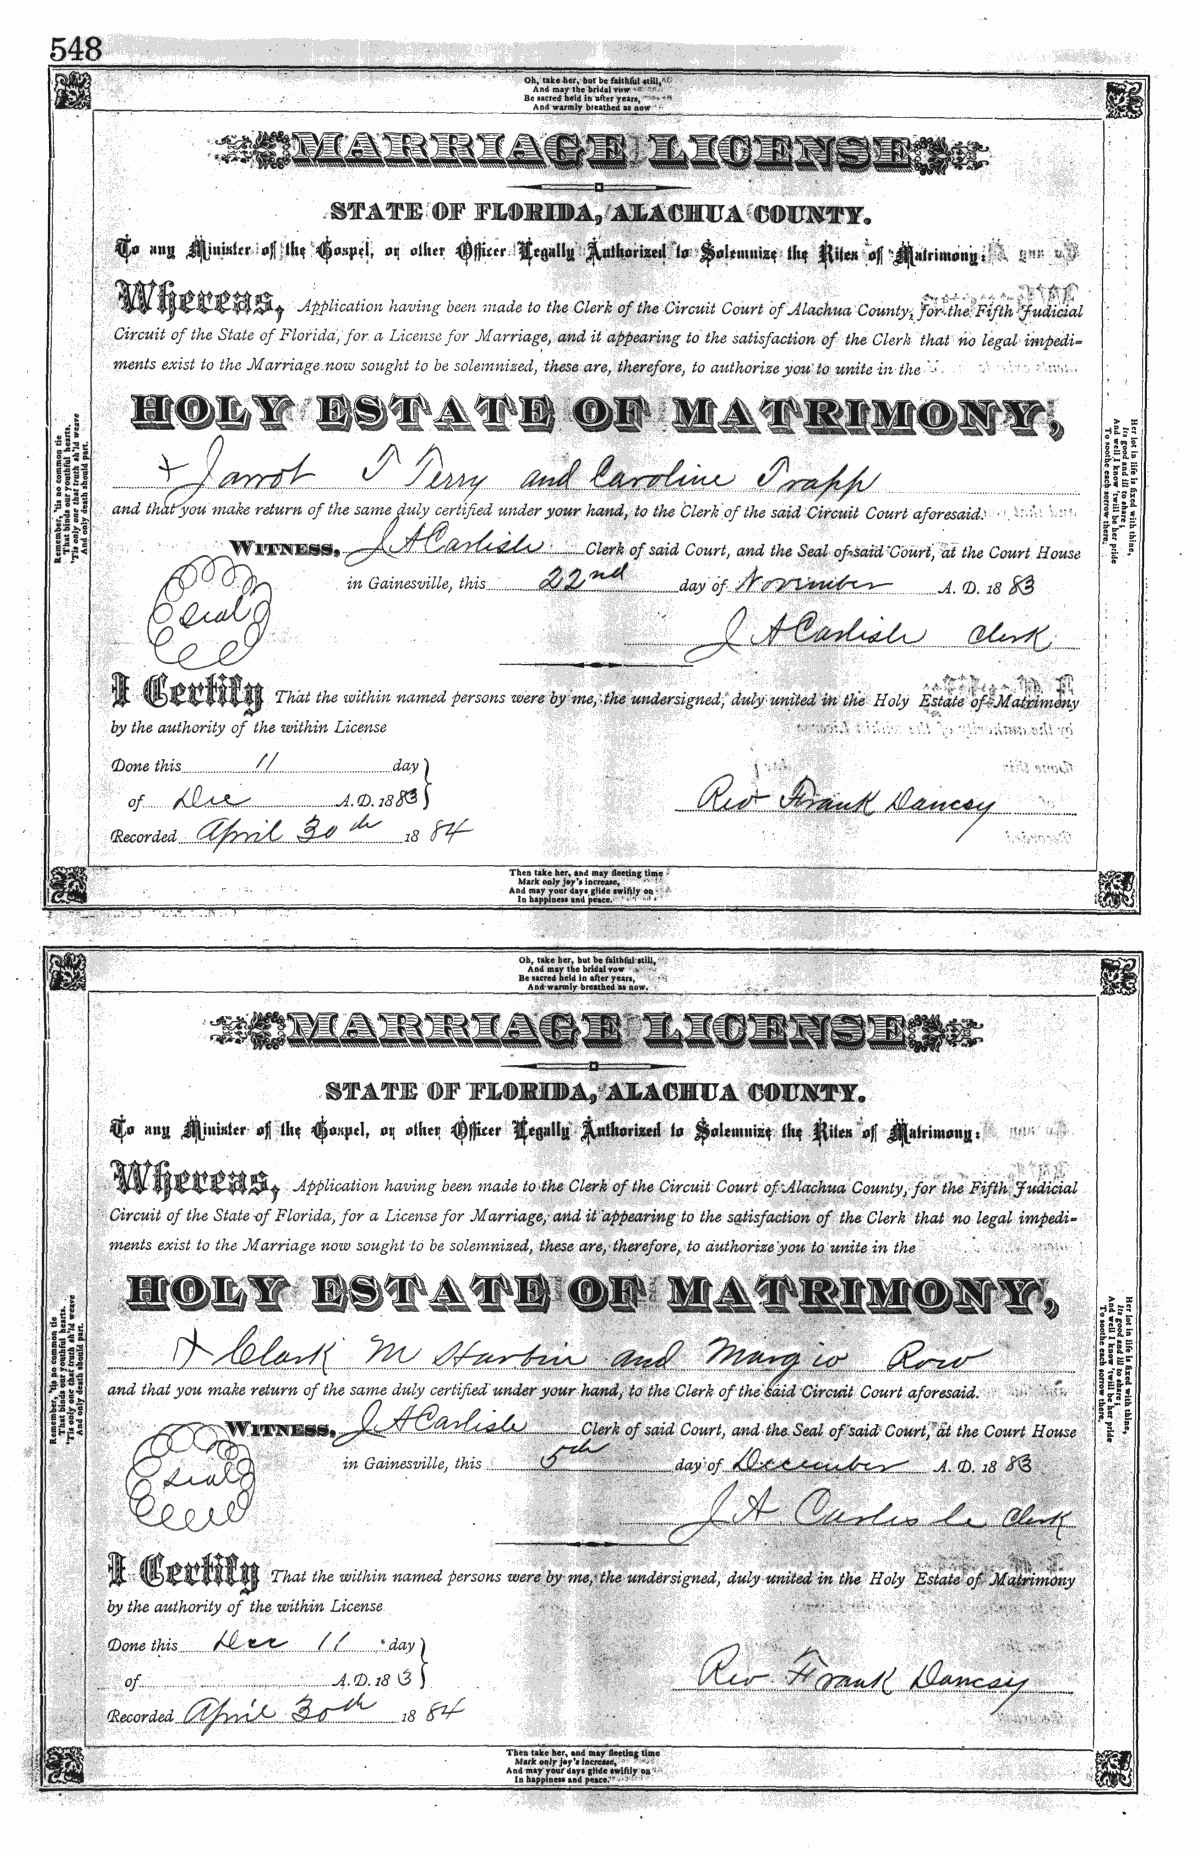 548
Oh, take her, but be faithful still,
And may the bridal vow
Be sacred held in after years,
And warmly breathed as now
MARRIAGE LICENSE
STATE OF FLORIDA, ALACHUA COUNTY.
To any Minister of the Gospel, or other Officer Legally Authorized to Solemnize the Rites of Matrimony:
Whereas, Application having been made to the Clerk of the Circuit Court of Alachua County, for the Fifth Judicial
Circuit of the State of Florida, for a License for Marriage, and it appearing to the satisfaction of the Clerk that no legal impedi-
ments exist to the Marriage now sought to be solemnized, these are, therefore, to authorize you to unite in the
HOLY ESTATE OF MATRIMONY,
+ Jarrot T Terry and Caroline Trapp
and that you make return of the same duly certified under your hand, to the Clerk of the said Circuit Court aforesaid.
WITNESS, J A Carlisle Clerk of said Court, and the Seal of said Court, at the Court House
in Gainesville, this 22nd day of November A. D. 1883
Seal
J A Carlisle Clerk
I Certify That the within named persons were by me, the undersigned, duly united in the Holy Estate of Matrimony
by the authority of the within License
Done this 11 day
of Dec A. D. 1883
Rev Frank Dancsy
Recorded April 30th 1884
Remember, 'tis no common tie
That binds our youthful hearts,
'Tis only one that truth sh'ld weave
And only death should part.
Her lot in life is fixed with thine,
Its good and ill to share;
And well I know 'twill be her pride
To soothe each sorrow there.
Then take her, and may fleeting time
Mark only joy's increase,
And may your days glide swiftly on
In happiness and peace.
Oh, take her, but be faithful still,
And may the bridal vow
Be sacred held in after years,
And warmly breathed as now.
MARRIAGE LICENSE
STATE OF FLORIDA, ALACHUA COUNTY.
To any Minister of the Gospel, or other Officer Legally Authorized to Solemnize the Rites of Matrimony:
Whereas, Application having been made to the Clerk of the Circuit Court of Alachua County, for the Fifth Judicial
Circuit of the State of Florida, for a License for Marriage, and it appearing to the satisfaction of the Clerk that no legal impedi-
ments exist to the Marriage now sought to be solemnized, these are, therefore, to authorize you to unite in the
HOLY ESTATE OF MATRIMONY,
+ Clark M Harbin and Margio Row
and that you make return of the same duly certified under your hand, to the Clerk of the said Circuit Court aforesaid.
WITNESS, J A Carlisle Clerk of said Court, and the Seal of said Court, at the Court House
in Gainesville, this 5th day of December A. D. 1883
Seal
J A Carlisle Clerk
I Certify That the within named persons were by me, the undersigned, duly united in the Holy Estate of Matrimony
by the authority of the within License
Done this Dec 11 day
of A. D. 183
Rev Frank Dancsy
Recorded April 30th 1884
Remember, 'tis no common tie
That binds our youthful hearts,
'Tis only one that truth sh'ld weave
And only death should part.
Her lot in life is fixed with thine,
Its good and ill to share;
And well I know 'twill be her pride
To soothe each sorrow there.
Then take her, and may fleeting time
Mark only joy's increase,
And may your days glide swiftly on
In happiness and peace.